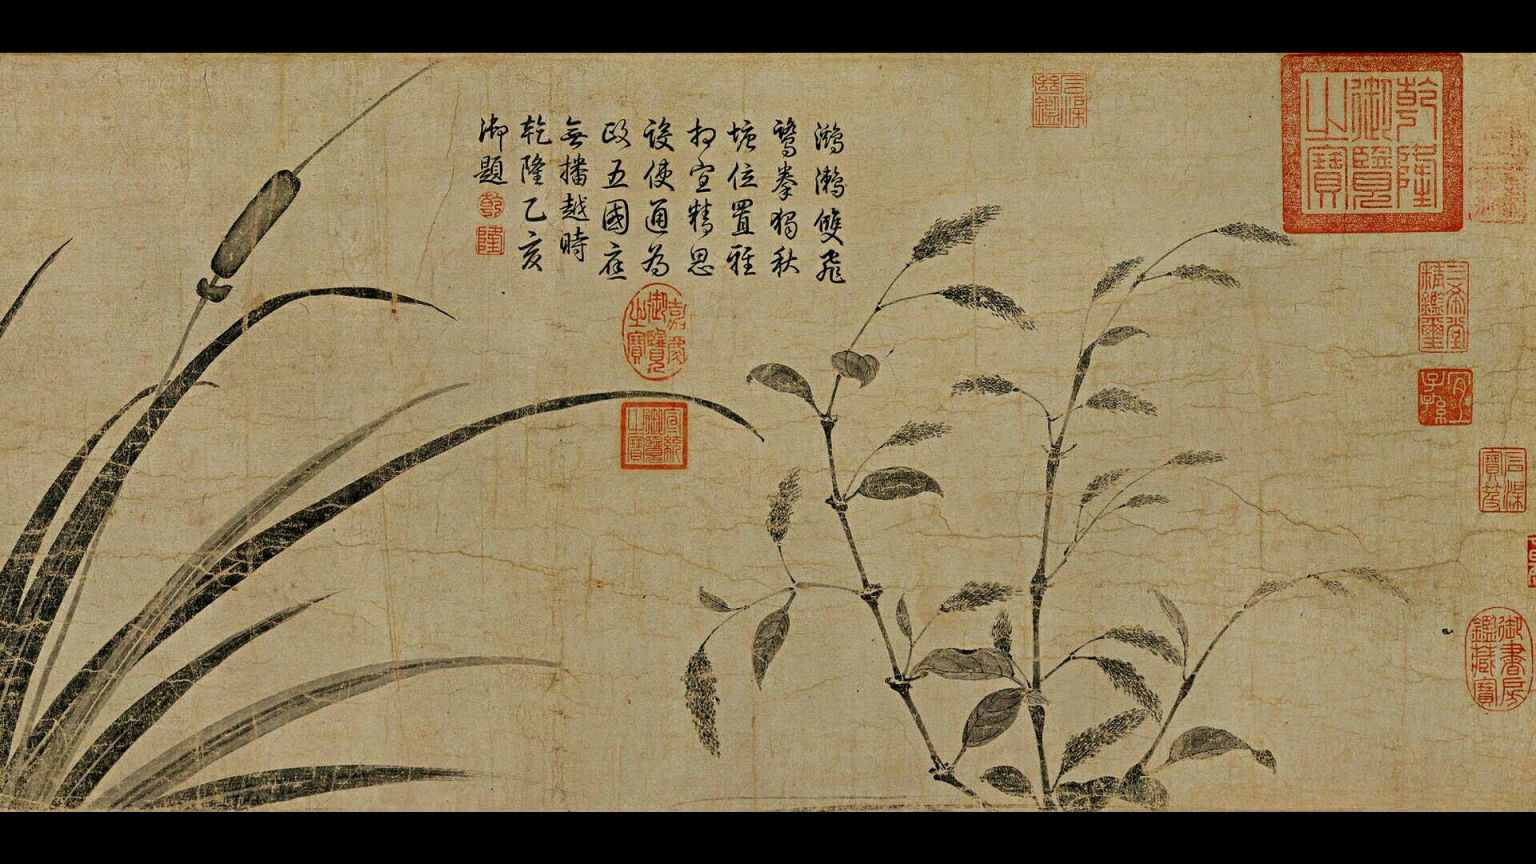 乾隆御覽之寶
三希堂精鑑璽
宜子孫
御書房鑑藏寶
鸂鶒雙飛
鷺拳獨秋
塘位置雅
相宜精思
設使通為
政五國應
無播越時
乾隆乙亥
御題
乾
隆
嘉慶御覽之寶
宣統御覽之寶